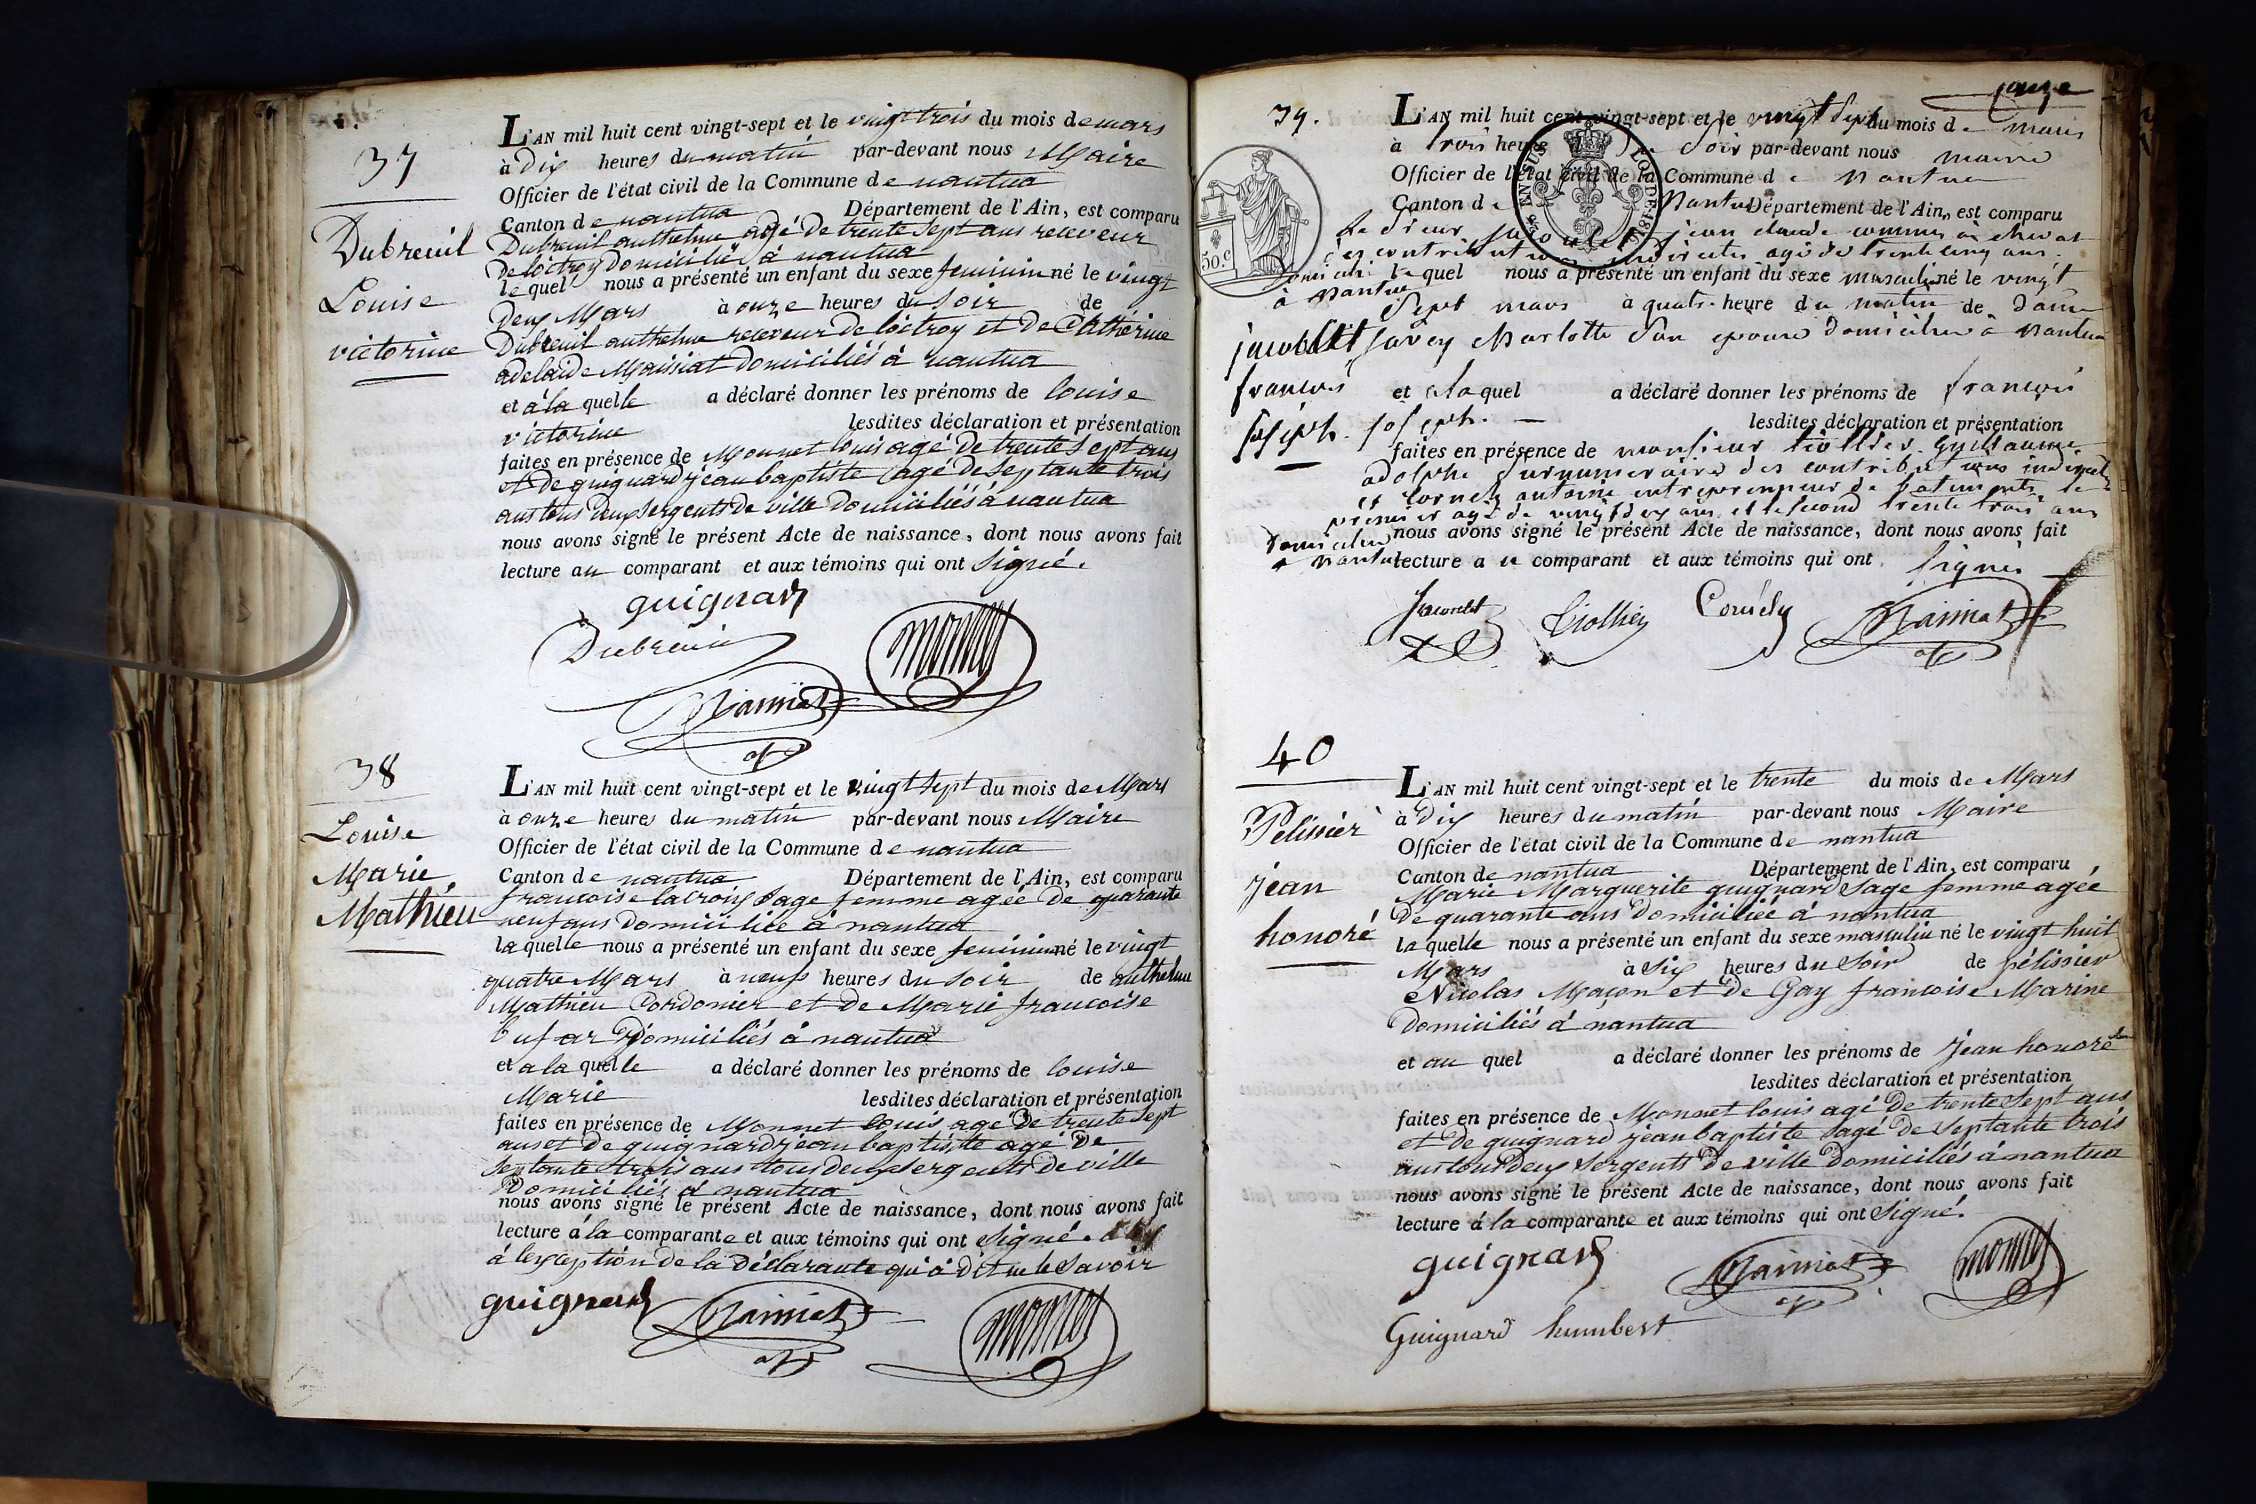 37
Dubreuil
Louise
victorine
L'AN mil huit cent vingt-sept et le vingt trois du mois de mars
à dix heures du matin par-devant nous Maire
Officier de l'état civil de la Commune de nantua
Canton de nantua Département de l'Ain, est comparu
Dubreuil anthelme agé de trente sept ans receveur
de loctroy domicilié à nantua
le quel nous a présenté un enfant du sexe feminin né le vingt
deux Mars à onze heures du soir de
Dubreuil anthelme receveur de loctroy et de Catherine
adelaide Maissiat domiciliés à nantua
et à la quelle a déclaré donner les prénoms de louise
victorine lesdites déclaration et présentation
faites en présence de Monnet louis agé de trente sept ans
et de guignard jéan baptiste agé de septante trois
ans tous deux sergents de ville domiciliés à nantua
nous avons signé le présent Acte de naissance, dont nous avons fait
lecture au comparant et aux témoins qui ont signé.
guignard
Dubreuil
monnet
Maissiat
38
Louise
Marie
Mathieu
L'AN mil huit cent vingt-sept et le vingt sept du mois de Mars
à onze heures du matin par-devant nous Maire
Officier de l'état civil de la Commune de nantua
Canton de nantua Département de l'Ain, est comparu
francoise lacroix sage femme agée de quarante
neuf ans domiciliée à nantua
la quelle nous a présenté un enfant du sexe feminin né le vingt
quatre Mars à neuf heures du soir de anthelme
Mathieu Cordonier et de Marie francoise
domiciliés à nantua
et a la quelle a déclaré donner les prénoms de louise
Marie lesdites déclaration et présentation
faites en présence de Monnet louis agé de trente sept
ans et de guignard jéan baptiste agé de
septante trois ans tous deux sergents de ville
domiciliés à nantua
nous avons signé le présent Acte de naissance, dont nous avons fait
lecture à la comparante et aux témoins qui ont signé.
à lexception de la déclarante qui à dit ne le savoir
guignard
Maissiat
monnet
onze
39.
jacoulet
francois
joseph.
L'AN mil huit cent vingt-sept et le vingt sept du mois de mars
à trois heures du soir par-devant nous maire
Officier de l'état civil de la Commune de Nantua
Canton de Nantua Département de l'Ain, est comparu
Le Sieur jacoulet jean claude commis à cheval
des contributions indirectes agé de trente cinq ans
domicilié le quel nous a présenté un enfant du sexe masculin né le vingt
à Nantua
sept mars à quatre heure du matin de dame
savey Marlotte son epouse domiciliée à Nantua
et a la quel a déclaré donner les prénoms de francois
joseph. lesdites déclaration et présentation
faites en présence de monsieur tiollier Guillaume
adolphe surnumeraire des contributions indirectes
et Cornely antoine entreprenneur de batiments le
premier agé de vingt dix ans et le second trente trois ans
domiciliés nous avons signé le présent Acte de naissance, dont nous avons fait
à Nantua lecture a u comparant et aux témoins qui ont signés
Jacoulet
Tiollier
Maissiat
50.c
EN SUS
LOI DE 1816
40
Pelissier
jéan
honoré
L'AN mil huit cent vingt-sept et le trente du mois de Mars
à dix heures du matin par-devant nous Maire
Officier de l'état civil de la Commune de nantua
Canton de nantua Département de l'Ain, est comparu
Marie Marguerite guignard sage femme agée
de quarante ans domiciliée à nantua
la quelle nous a présenté un enfant du sexe masculin né le vingt huit
Mars à six heures du soir de pélissier
Nicolas Maçon et de Gay francoise Marine
domiciliés à nantua
et au quel a déclaré donner les prénoms de jéan honoré
lesdites déclaration et présentation
faites en présence de Monnet louis agé de trente sept ans
et de guignard jéan baptiste agé de septante trois
ans tous deux sergents de ville domiciliés à nantua
nous avons signé le présent Acte de naissance, dont nous avons fait
lecture à la comparante et aux témoins qui ont signé.
guignard
Maissiat
monnet
Guignard humbert